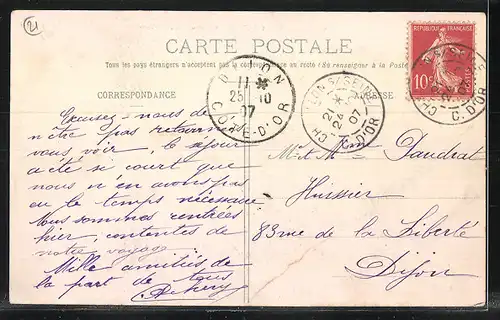 21
CARTE POSTALE
Tous les pays étrangers n'acceptent pas la correspondance au recto (Se renseigner à la Poste)
CORRESPONDANCE
ADRESSE
RÉPUBLIQUE FRANÇAISE
10c
POSTES
DIJON
11 *
25 10
07
COTE-D'OR
CHATILLON S/SEINE
24
07
D'OR
C. D'OR
Excusez-nous de
n'être pas retourné
vous voir, le séjour
a été si court que
nous n'en avons pas
eu le temps nécessaire.
Nous sommes rentrées
hier, contentes de
notre voyage.
Mille amitiés de
la part de tous
Mr et Mme Daudrat
Huissier
83 rue de la Liberté
Dijon